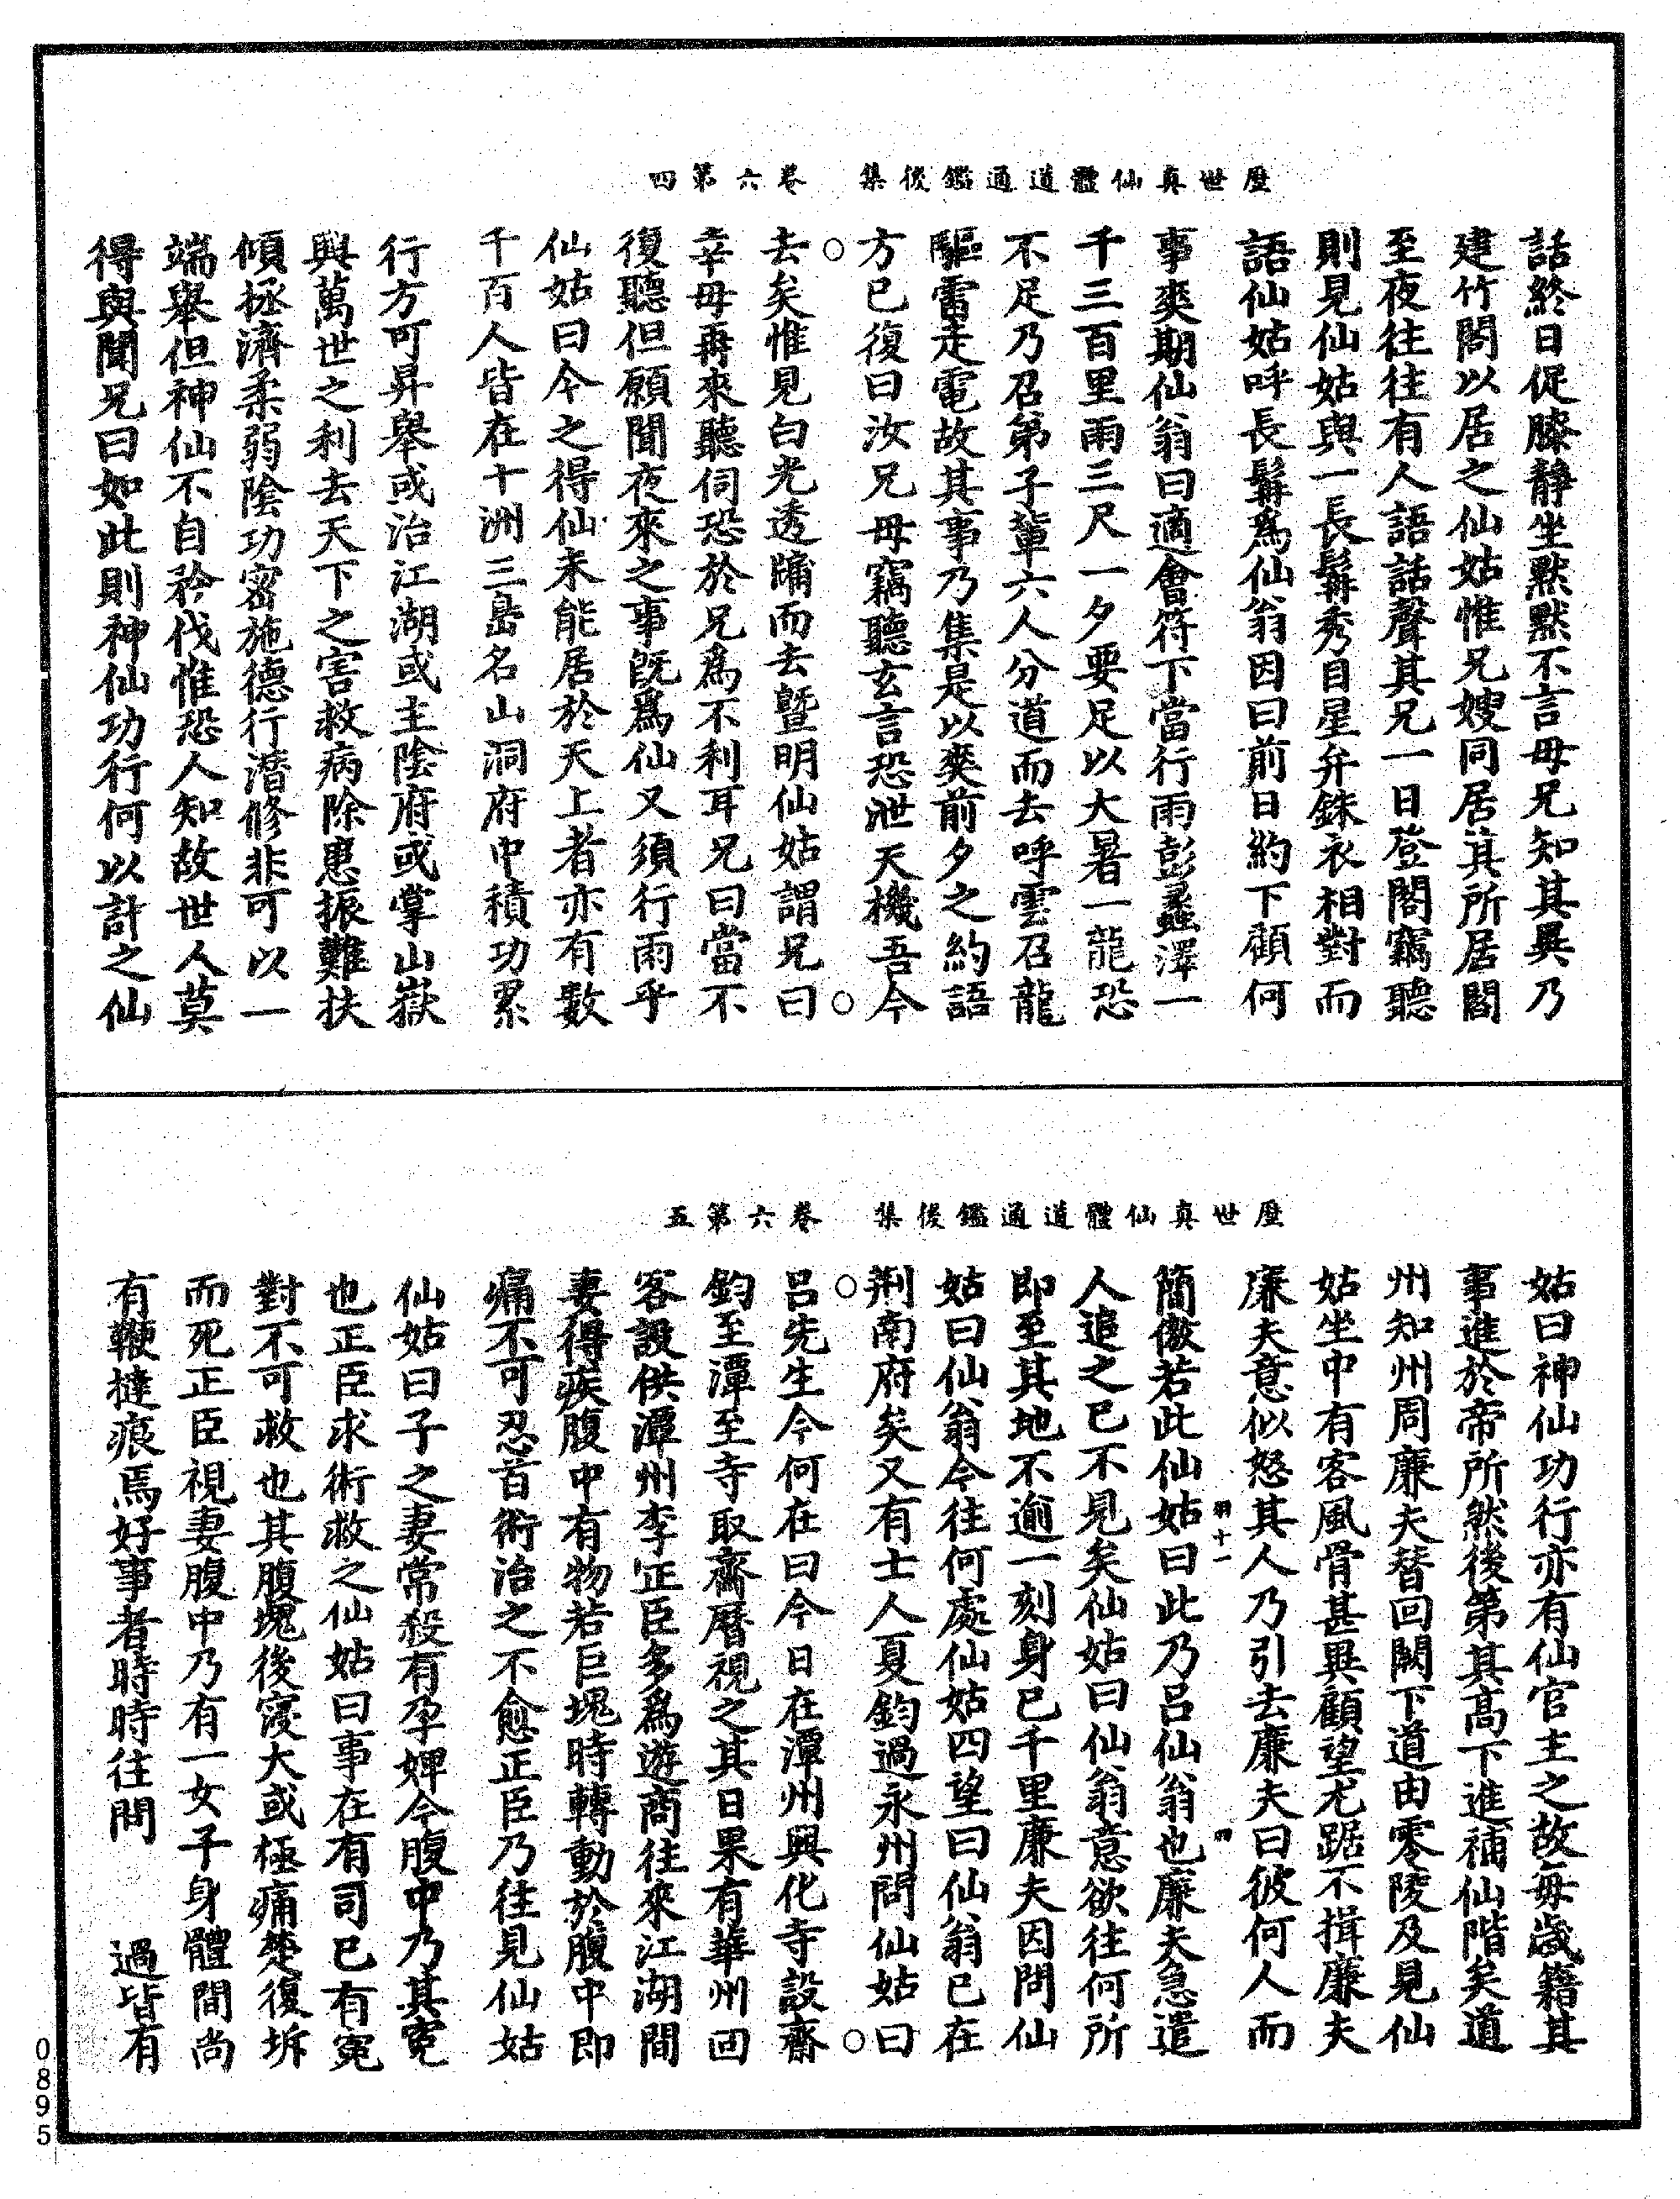 歷世真仙體道通鑑後集　卷六第四
話終日促膝靜坐默默不言母兄知其異乃
建竹閣以居之仙姑惟兄嫂同居其所居閣
至夜往往有人語話聲其兄一日登閣竊聽
則見仙姑與一長髯秀目星弁銖衣相對而
語仙姑呼長髯為仙翁因曰前日約下顧何
事爽期仙翁曰適會符下當行雨彭蠡澤一
千三百里雨三尺一夕要足以大暑一龍恐
不足乃召第子輩六人分道而去呼雲召龍
驅雷走電故其事乃集是以爽前夕之約語
方已復曰汝兄毋竊聽玄言恐泄天機吾今
去矣惟見白光透牖而去暨明仙姑謂兄曰
幸毋再來聽伺恐於兄為不利耳兄曰當不
復聽但願聞夜來之事旣為仙又須行雨乎
仙姑曰今之得仙未能居於天上者亦有數
千百人皆在十洲三島名山洞府中積功累
行方可昇舉或治江湖或主陰府或掌山嶽
興萬世之利去天下之害救病除患振難扶
傾拯濟柔弱陰功密施德行潛修非可以一
端舉但神仙不自矜伐惟恐人知故世人莫
得與聞兄曰如此則神仙功行何以計之仙
歷世真仙體道通鑑後集　卷六第五
姑曰神仙功行亦有仙官主之故每歲籍其
事進於帝所然後第其高下進補仙階矣道
州知州周廉夫替回闕下道由零陵及見仙
姑坐中有客風骨甚異顧望尤踞不揖廉夫
廉夫意似怒其人乃引去廉夫曰彼何人而
簡傲若此仙姑曰此乃呂仙翁也廉夫急遣
人追之已不見矣仙姑曰仙翁意欲往何所
即至其地不逾一刻身已千里廉夫因問仙
姑曰仙翁今往何處仙姑四望曰仙翁已在
荆南府矣又有士人夏鈞過永州問仙姑曰
呂先生今何在曰今日在潭州興化寺設齋
鈞至潭至寺取齋曆視之其日果有華州回
客設供潭州李正臣多為遊商往來江湖間
妻得疾腹中有物若巨塊時轉動於腹中即
痛不可忍首術治之不愈正臣乃往見仙姑
仙姑曰子之妻常殺有孕婢今腹中乃其冤
也正臣求術救之仙姑曰事在有司已有冤
對不可救也其腹塊後寖大或極痛楚復坼
而死正臣視妻腹中乃有一女子身體間尚
有鞭撻痕焉好事者時時往問　過皆有
0895